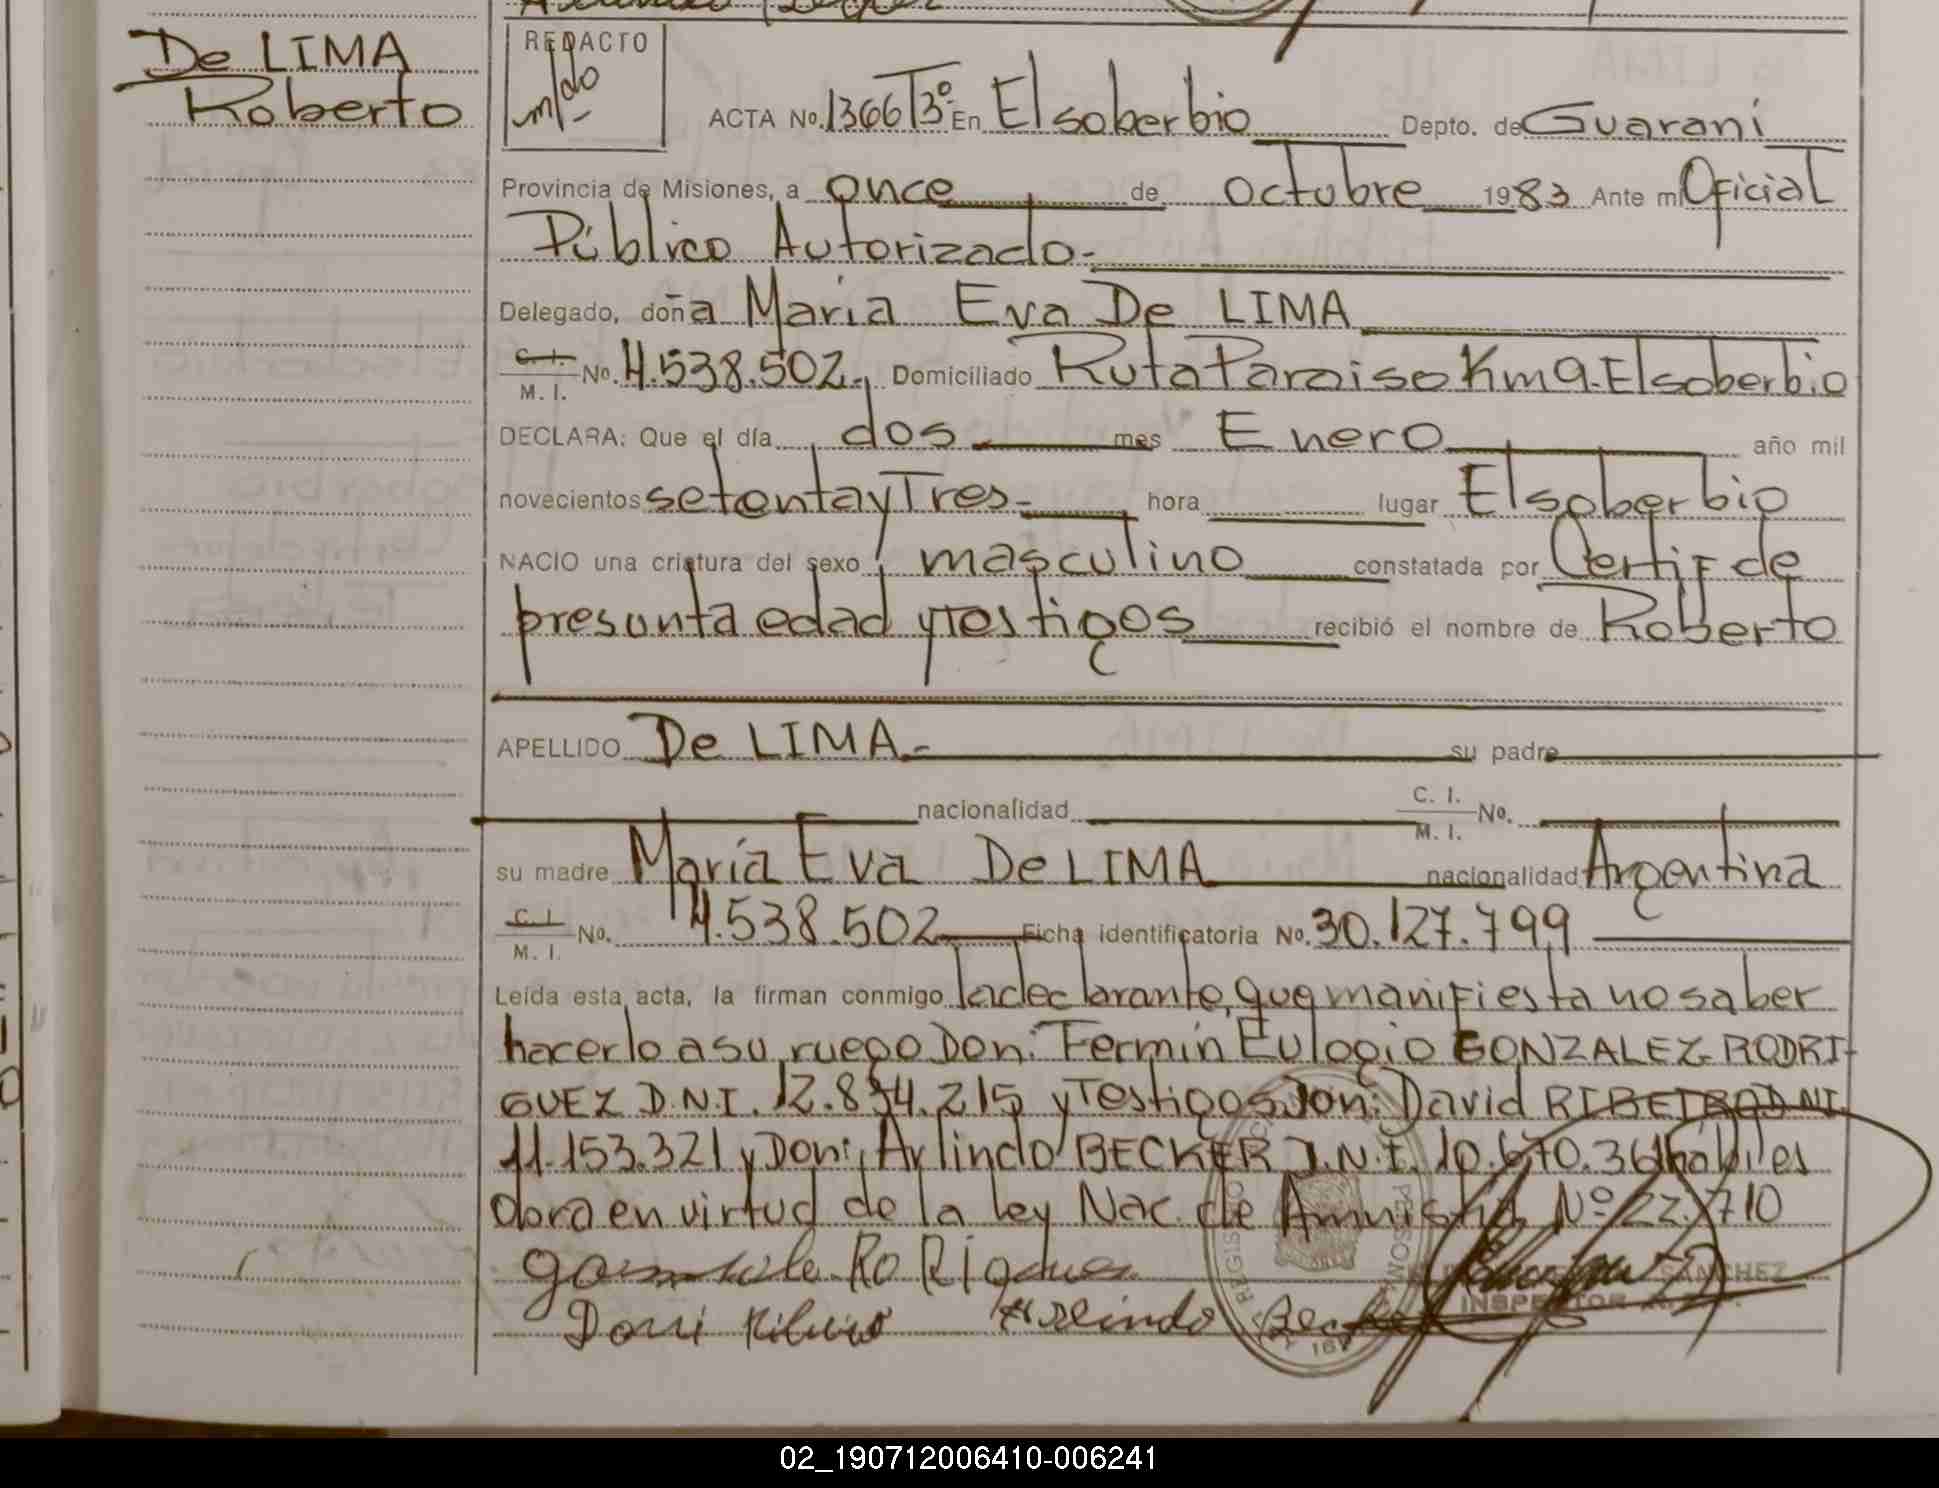 De LIMA
Roberto
REDACTO
ACTA No. 1366 T3º En El soberbio Depto. de Guaraní
Provincia de Misiones, a once de octubre 1983 Ante mi Oficial
Público Autorizado.-
Delegado, doña Maria Eva De LIMA
C. I.
M. I. No. 4.538.502.- Domiciliado Ruta Paraiso Km 9. El soberbio
DECLARA: Que el día dos mes Enero año mil
novecientos setenta y Tres- hora lugar El soberbio
NACIO una criatura del sexo masculino constatada por Certif de
presunta edad y testigos recibió el nombre de Roberto
APELLIDO De LIMA.- su padre
nacionalidad C. I.
M. I. No.
su madre María Eva De LIMA nacionalidad Argentina
C. I.
M. I. No. 4.538.502 Ficha identificatoria No. 30.127.799
Leída esta acta, la firman conmigo la declarante, que manifiesta no saber
hacerlo a su ruego Don: Fermín Eulogio GONZALEZ RODRI-
GUEZ D.N.I. 12.834.215 y Testigos Don: David RIBEIRO D NI
11.153.321 y Don: Arlindo BECKER D.N.I. 10.670.361 habiles
obra en virtud de la ley Nac. de Amnistia Nº 22.710
Arlindo Becker
SANCHEZ
INSPECTOR
02_190712006410-006241